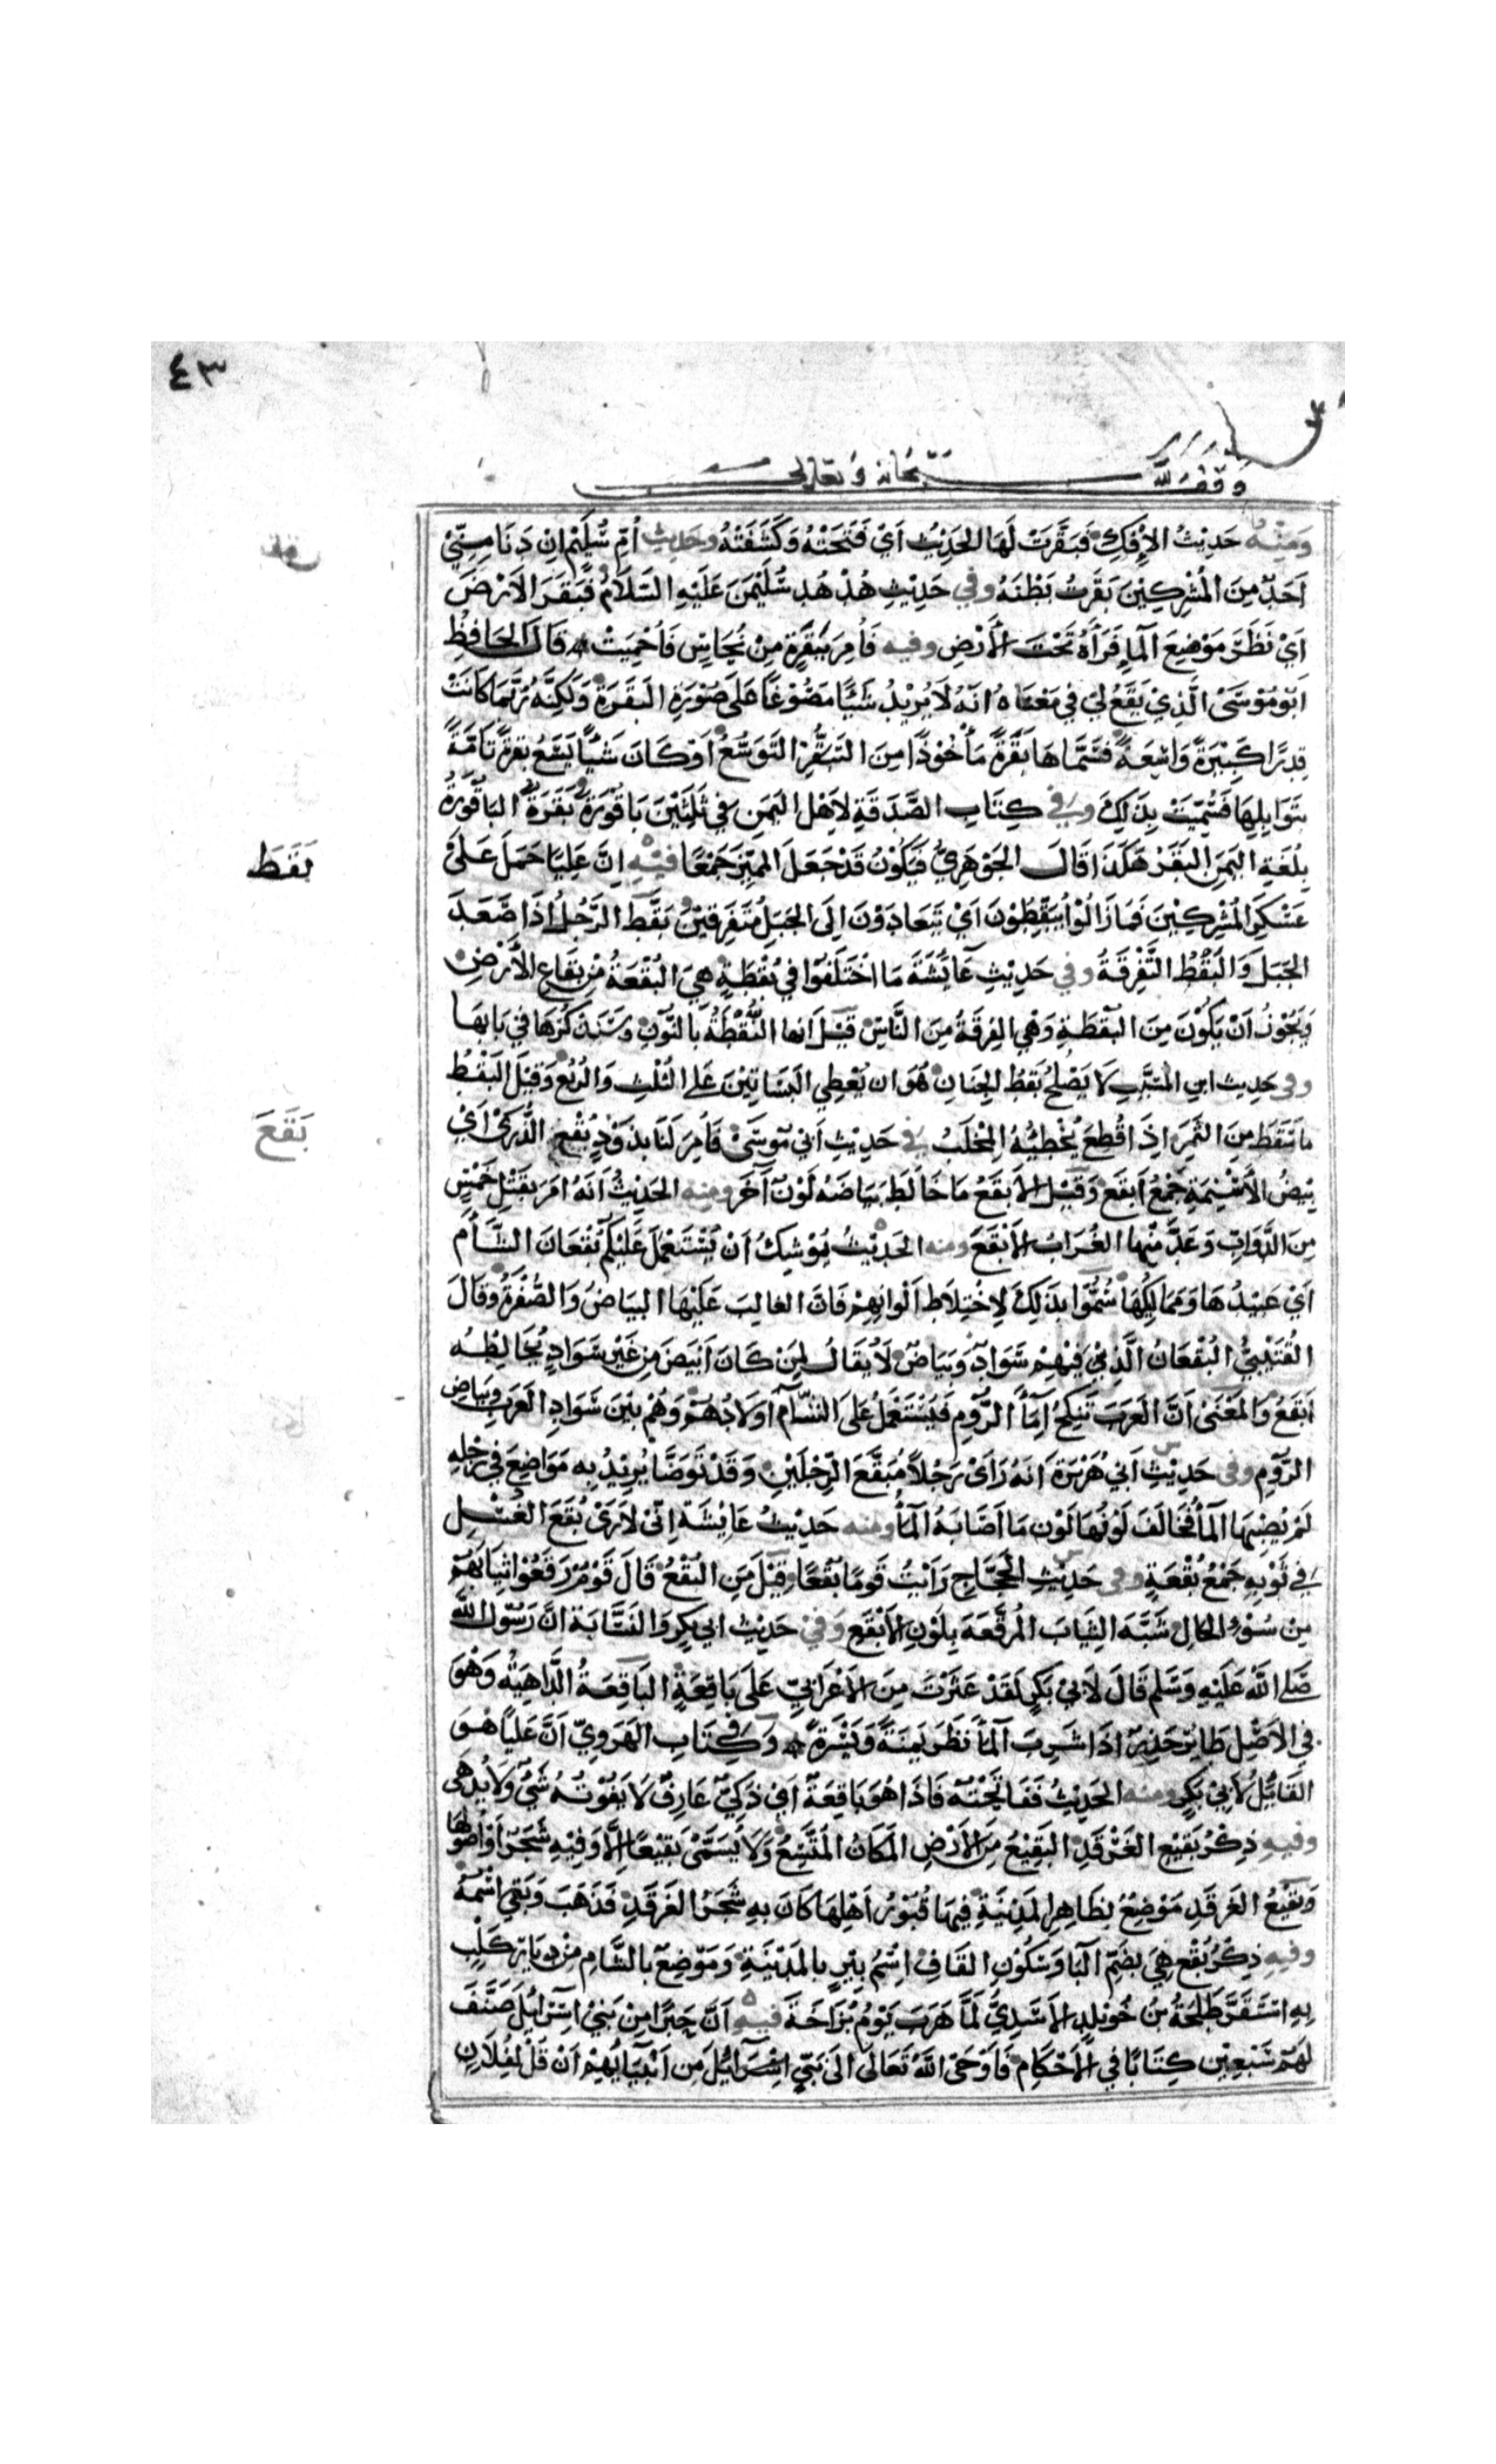 ٤٣
وقف لله سبحانه وتعالى
وَمِنْهُ حَدِيْثُ الإِفْكِ فَبَقَّرَتْ لَهَا الحَدِيْثَ اَيْ فَتَحَتْهُ وَكَشَفَتْهُ وحديث اُمِّ سُلَيْمٍ اِنْ دَنَا مِنِّيْ
اَحَدٌ مِنَ المُشْرِكِيْنَ بَقَرْتُ بَطْنَهُ وفي حَدِيْثِ هُدْهُدِ سُلَيْمٰنَ عَلَيْهِ السَّلَامُ فَبَقَرَ الاَرْضَ
اَيْ نَظَرَ مَوْضِعَ المآءِ فَرَآهُ تَحْتَ الأَرْضِ وفيه فَأَمَرَ بِبَقَرَةٍ مِنْ نُحَاسٍ فَأُحْمِيَتْ قَالَ الحَافِظُ
اَبُوْ مُوْسَى الَّذِيْ يَقَعُ لِيْ فِيْ مَعْنَاهُ انَّهُ لَا يُرِيْدُ شَيْئًا مَصُوْغًا عَلَى صُوْرَةِ البَقَرَةِ وَلَكِنَّهُ رُبَّمَا كَانَتْ
قِدْرًا كَبِيْرَةً وَاسِعَةً فَسَمَّاهَا بَقَرَةً مَأْخُوْذًا مِنَ التَّبَقُّرِ التَّوَسُّعِ اَوْ كَانَ شَيْئًا يَسَعُ بَقَرَةً تَامَّةً
بِتَوَابِلِهَا فَسُمِّيَتْ بِذَلِكَ وفي كِتَابِ الصَّدَقَةِ لِاَهْلِ اليَمَنِ فِي ثَلٰثِيْنَ بَاقُوْرَةً بَقَرَةٌ البَاقُوْرَةُ
بِلُغَةِ اليَمَنِ البَقَرُ هَكَذَا قَالَ الجَوْهَرِيُّ فَيَكُوْنُ قَدْ جَعَلَ المُمَيِّزَ جَمْعًا فيه اِنَّ عَلِيًّا حَمَلَ عَلَى
بَقَطَ
عَسْكَرِ المُشْرِكِيْنَ فَمَا زَالُوْا يُبَقِّطُوْنَ اَيْ يَتَعَادَوْنَ اِلَى الجَبَلِ مُتَفَرِّقِيْنَ بَقَّطَ الرَّجُلُ اِذَا صَعَدَ
الجَبَلَ وَالبَقْطُ التَّفْرِقَةُ وفي حَدِيْثِ عَائِشَةَ مَا اخْتَلَفُوْا فِي بُقْطَةٍ هِيَ البُقْعَةُ مِنْ بِقَاعِ الأَرْضِ
وَيَجُوْزُ اَنْ يَكُوْنَ مِنَ البُقْطَةِ وَهِيَ الفِرْقَةُ مِنَ النَّاسِ قِيْلَ انها النُّقْطَةُ بِالنُّوْنِ وَسَنَذْكُرُهَا فِي بَابِهَا
وفي حَدِيث ابنِ المُسَيَّبِ لَا يَصْلُحُ بَقْطُ الجِنَانِ هُوَ ان يُعْطِي البَسَاتِيْنَ عَلَى الثُّلْثِ وَالرُّبْعِ وَقِيْلَ البَقْطُ
مَا سَقَطَ مِنَ الثَّمَرِ اِذَا قُطِعَ يُخْطِئُهُ المِخْلَبُ في حَدِيْثِ اَبِي مُوْسَى فَأَمَرَ لَنَا بِذَوْدٍ بُقْعِ الذُّرَى اَيْ
بَقَعَ
بِيْضُ الأَسْنِمَةِ جَمْعُ اَبْقَعَ وَقِيْلَ الأَبْقَعُ مَا خَالَطَ بَيَاضَهُ لَوْنٌ آخَرُ ومنه الحَدِيْثُ اَنَّهُ اَمَرَ بِقَتْلِ خَمْسٍ
مِنَ الدَّوَابِّ وَعَدَّ مِنْهَا الغُرَابَ الأَبْقَعَ ومنه الحَدِيْثُ يُوْشِكُ اَنْ يُسْتَعْمَلَ عَلَيْكُمْ بُقْعَانُ الشَّأْم
اَيْ عَبِيْدُهَا وَمَمَالِيْكُهَا سُمُّوْا بِذَلِكَ لِاخْتِلَاطِ اَلْوَانِهِمْ فَاِنَّ الغَالِبَ عَلَيْهَا البَيَاضُ وَالصُّفْرَةُ وَقَالَ
القُتَيْبِيُّ البُقْعَانُ الَّذِيْنَ فِيْهِمْ سَوَادٌ وَبَيَاضٌ لَا يُقَالُ لِمَنْ كَانَ اَبْيَضَ مِنْ غَيْرِ سَوَادٍ يُخَالِطُهُ
اَبْقَعُ وَالمَعْنَى اَنَّ العَرَبَ تَنْكِحُ اِمَآءَ الرُّوْمِ فَيُسْتَعْمَلُ عَلَى الشَّأْمِ اَوْلَادُهُمْ وَهُمْ بَيْنَ سَوَادِ العَرَبِ وَبَيَاضِ
الرُّوْمِ وفي حَدِيْثِ اَبِي هُرَيْرَةَ اَنَّهُ رَاَى رَجُلًا مُبَقَّعَ الرِّجْلَيْنِ وَقَدْ تَوَضَّأَ يُرِيْدُ بِهِ مَوَاضِعَ فِي رِجْلِهِ
لَمْ يُصِبْهَا المَآءُ فَخَالَفَ لَوْنُهَا لَوْنَ مَا اَصَابَهُ المَآءُ ومنه حَدِيْثُ عَائِشَةَ اِنِّيْ لَأَرَى بُقَعَ الغَسْلِ
فِي ثَوْبِهِ جَمْعُ بُقْعَةٍ وفي حَدِيْثِ الحَجَّاجِ رَاَيْتُ قَوْمًا بُقْعًا وَقِيْلَ مَا البُقْعُ قَالَ قَوْمٌ رَقَعُوْا ثِيَابَهُمْ
مِنْ سُوْءِ الحَالِ شَبَّهَ الثِّيَابَ المُرَقَّعَةَ بِلَوْنِ الأَبْقَعِ وَفي حَدِيْث ابي بَكرٍ وَالنَسَّابَة انَّ رَسُوْلَ اللهِ
صَلَّى اللهُ عَلَيْهِ وَسَلَّم قَالَ لِأَبِيْ بَكْرٍ لَقَدْ عَثَرْتَ مِنَ الأَعْرَابِيِّ عَلَى بَاقِعَةٍ البَاقِعَةُ الدَّاهِيَةُ وَهُوَ
فِي الأَصْلِ طَائِرٌ حَذِرٌ اِذَا شَرِبَ المَآءَ نَظَرَ يَمْنَةً وَيَسْرَةً وَفي كِتَابِ الهَرَوِيِّ اَنَّ عَلِيًّا هُوَ
القَائِلُ لِأَبِيْ بَكْرٍ ومنه الحَدِيْثُ فَفَاتَحْتُهُ فَاِذَا هُوَ بَاقِعَةٌ اَيْ ذَكِيٌّ عَارِفٌ لَا يَفُوْتُهُ شَيْءٌ وَلَا يُدْهَى
وفيه ذِكْرُ بَقِيْعِ الغَرْقَدِ البَقِيْعُ مِنَ الأَرْضِ المَكَانُ المُتَّسِعُ وَلَا يُسَمَّى بَقِيْعًا اِلَّا وَفِيْهِ شَجَرٌ اَوْ اُصُوْلُهَا
وَبَقِيْعُ الغَرْقَدِ مَوْضِعٌ بِظَاهِرِ المَدِيْنَةِ فِيْهَا قُبُوْرُ اَهْلِهَا كَانَ بِهِ شَجَرُ الغَرْقَدِ فَذَهَبَ وَبَقِيَ اسْمُهُ
وفيهِ ذِكْرُ بُقْعٍ هِيَ بِضَمِّ البَآءِ وَسُكُوْنِ القَافِ اسْمُ بِئْرٍ بِالمَدِيْنَةِ وَمَوْضِعٌ بِالشَّامِ مِنْ دِيَارِ كَلْبٍ
بِهِ اسْتَقَرَّ طَلْحَةُ بْنُ خُوَيْلِدٍ الأَسَدِيُّ لَمَّا هَرَبَ يَوْمَ بُزَاخَةَ فيه اَنَّ حَبْرًا مِنْ بَنِيْ اِسْرَائِيْلَ صَنَّفَ
لَهُمْ سَبْعِيْنَ كِتَابًا فِي الأَحْكَامِ فَأَوْحَى اللهُ تَعَالَى اِلَى نَبِيِّ اِسْرَائِيْلَ مِن اَنْبِيَائِهِمْ اَنْ قُلْ لِفُلَانٍ